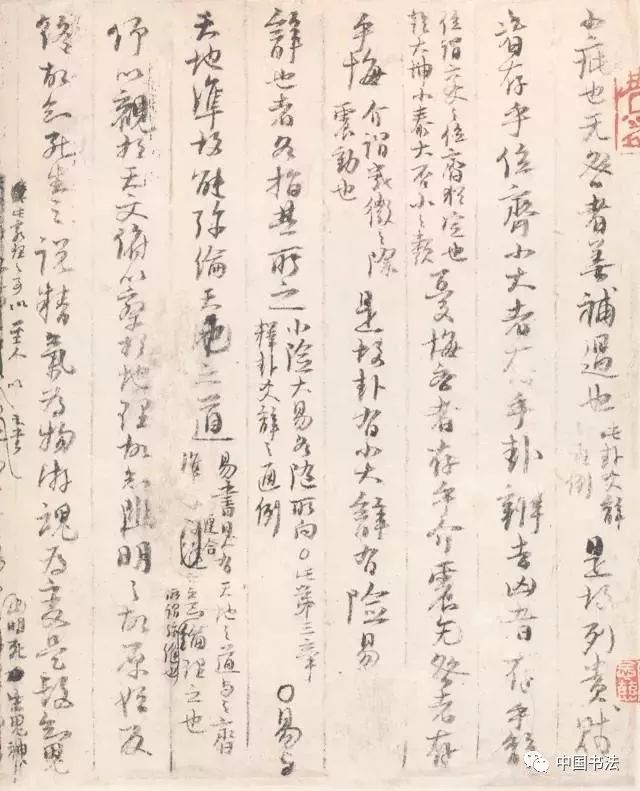 小疵也无咎者善補過也
此卦爻辭
通例
是故列貴賤
者存乎位齊小大者存乎卦辨吉凶者存乎辭
位謂六爻之位齊猶定也
大 小泰大否小之類
憂悔吝者存乎介震无咎者存
乎悔
介謂幾微之際
震動也
是故卦有小大辭有險易
辭也者各指其所之
小險大易各隨所向○此第三章
釋卦爻辭之通例
○易與
天地準故能彌綸天地之道
易書具有天地之道與之齊
準
聯合
綸理之也
仰以觀於天文俯以察於地理故知幽明之故原始反
終故知死生之說精氣為物游魂為變是故知鬼
此窮理之事以聖人以
幽明死生鬼神
中国书法